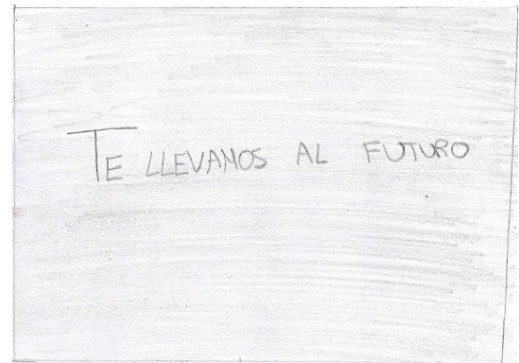 TE LLEVAMOS AL FUTURO